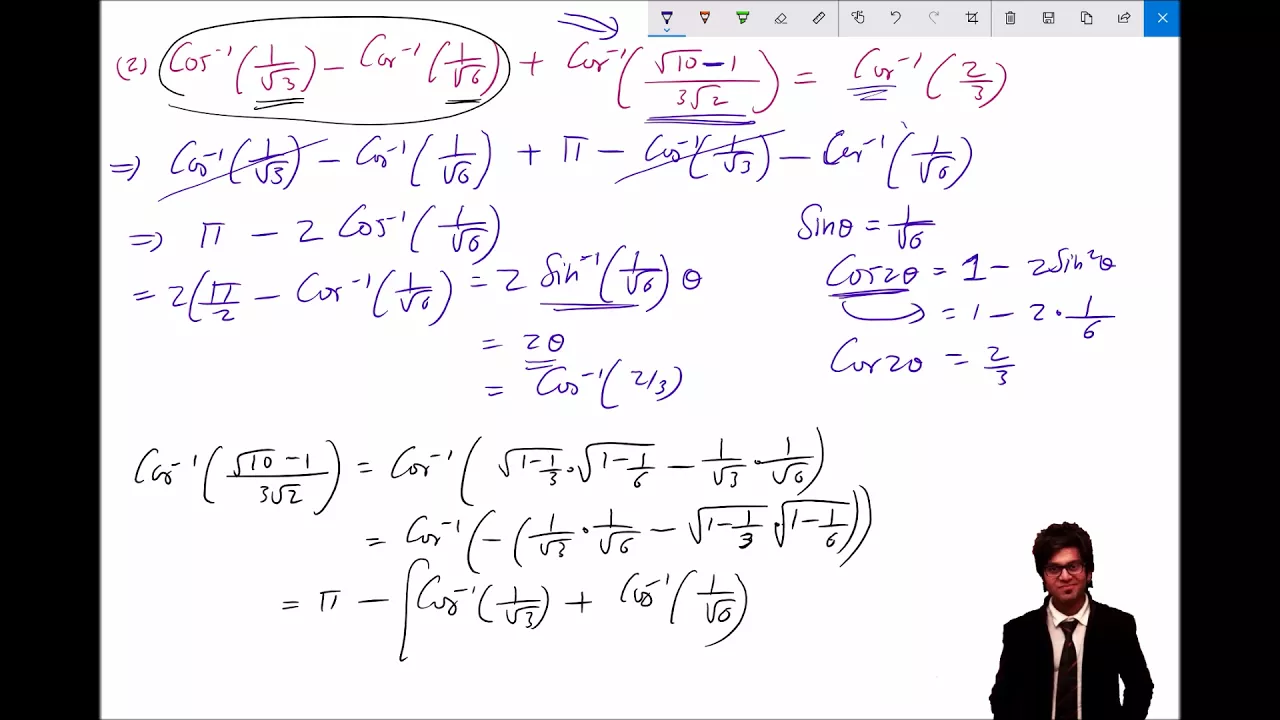 (2) Cos⁻¹(1/√3) − Cos⁻¹(1/√6) + Cos⁻¹((√10−1)/(3√2)) = Cos⁻¹(2/3)
⇒ Cos⁻¹(1/√3) − Cos⁻¹(1/√6) + π − Cos⁻¹(1/√3) − Cos⁻¹(1/√6)
⇒ π − 2 Cos⁻¹(1/√6)
= 2(π/2 − Cos⁻¹(1/√6) = 2 Sin⁻¹(1/√6) θ
= 2θ
= Cos⁻¹(2/3)
Sinθ = 1/√6
Cos2θ = 1 − 2Sin²θ
= 1 − 2·1/6
Cos2θ = 2/3
Cos⁻¹((√10−1)/(3√2)) = Cos⁻¹(√(1−1/3)·√(1−1/6) − 1/√3·1/√6)
= Cos⁻¹(−(1/√3·1/√6 − √(1−1/3)·√(1−1/6)))
= π − [Cos⁻¹(1/√3) + Cos⁻¹(1/√6)